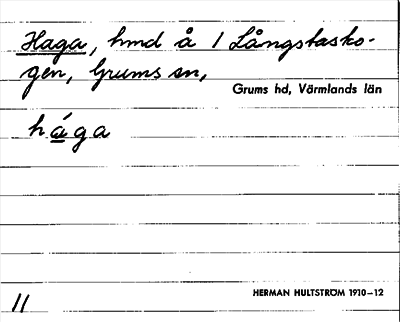 Haga, hmd å 1 Långstasko-
gen, Grums sn,
Grums hd, Värmlands län
hága
HERMAN HULTSTRÖM 1910-12
11